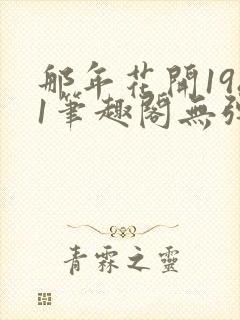 那年花開19
1筆趣閣無
青霖之靈